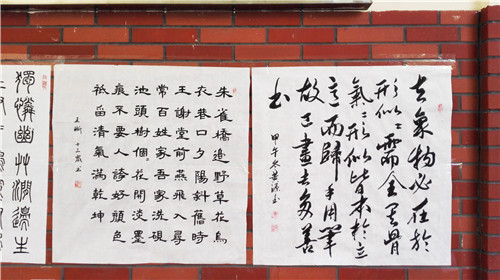 夫象物必在於
形似〻需全其骨
氣〻形似皆本於立
意而歸乎用筆
故工畫者多善
書
甲午冬
朱雀橋邊野草花烏
衣巷口夕陽斜舊時
王謝堂前燕飛入尋
常百姓家吾家洗硯
池頭樹個〻花開淡墨
痕不要人誇好顏色
祗留清氣滿乾坤
十三歲书
獨憐幽草澗邊生